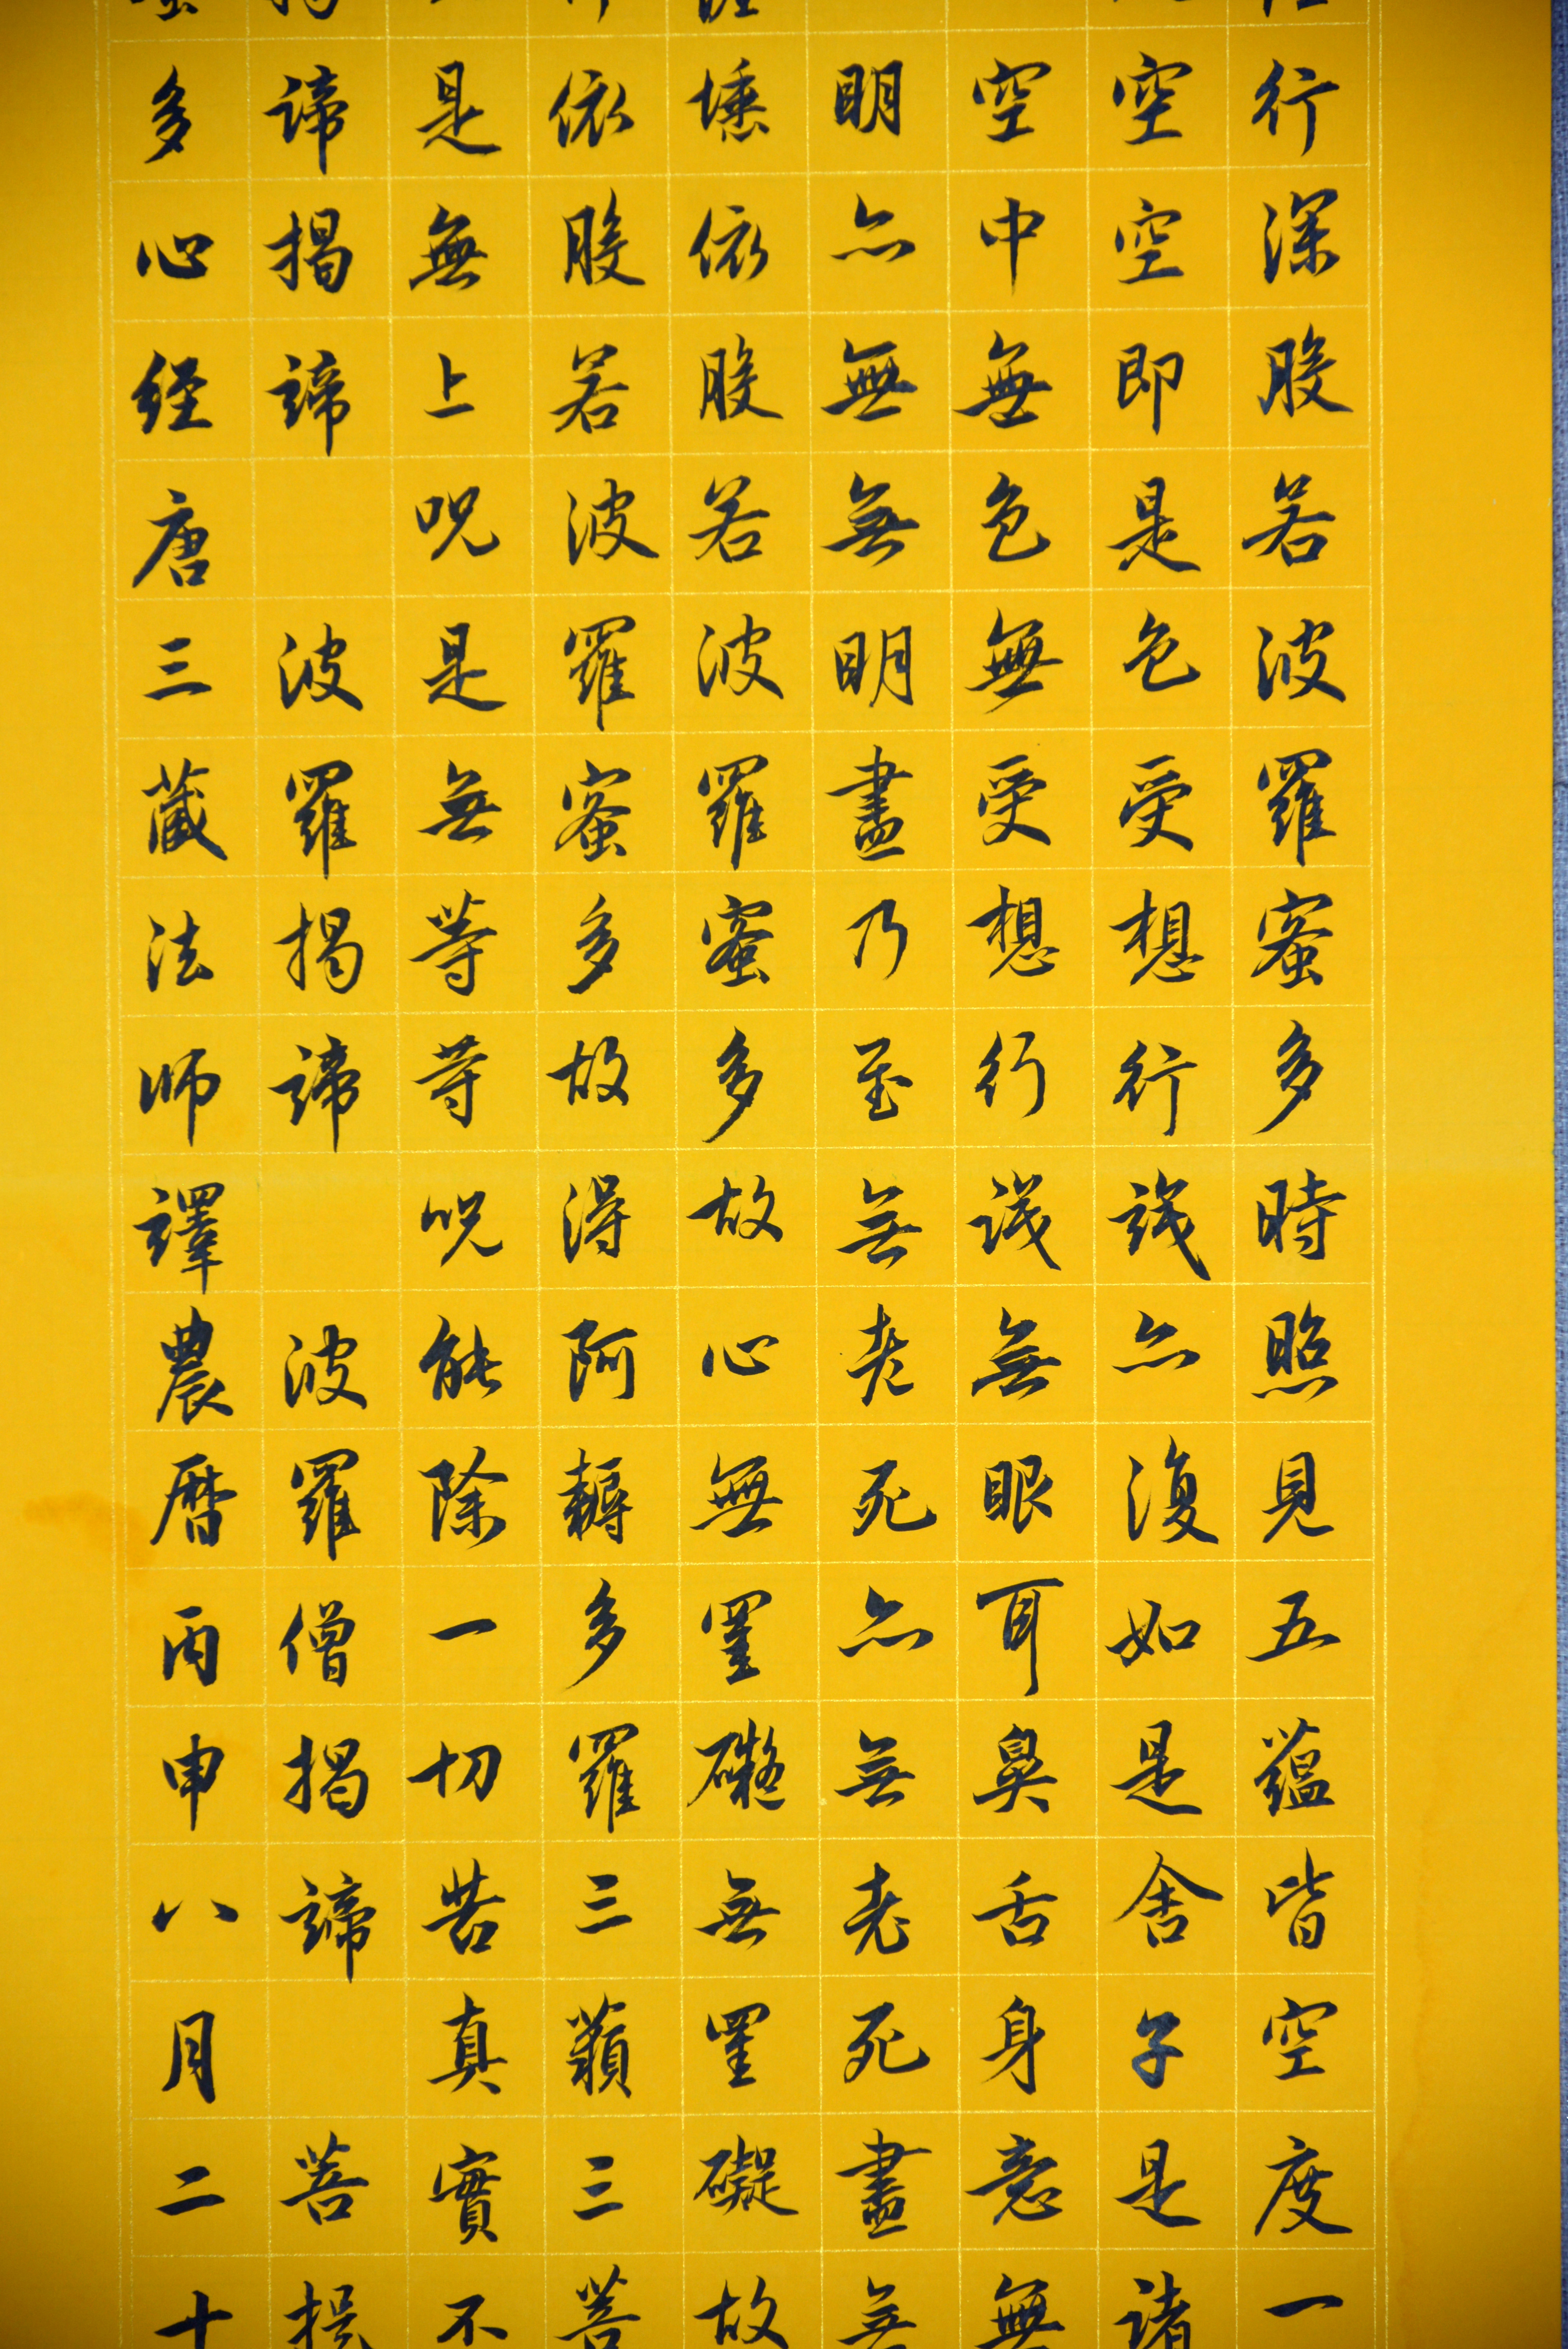 行深般若波羅蜜多時照見五蘊皆空度一
空空即是色受想行識亦復如是舍子是諸
空中無色無受想行識無眼耳鼻舌身意無
明亦無無明盡乃至無老死亦無老死盡無
埵依般若波羅蜜多故心無罣礙無罣礙故
依般若波羅蜜多故得阿耨多羅三藐三菩
是無上呪是無等等呪能除一切苦真實不
諦揭諦 波羅揭諦 波羅僧揭諦 菩提
多心経唐三藏法师譯農曆丙申八月二十